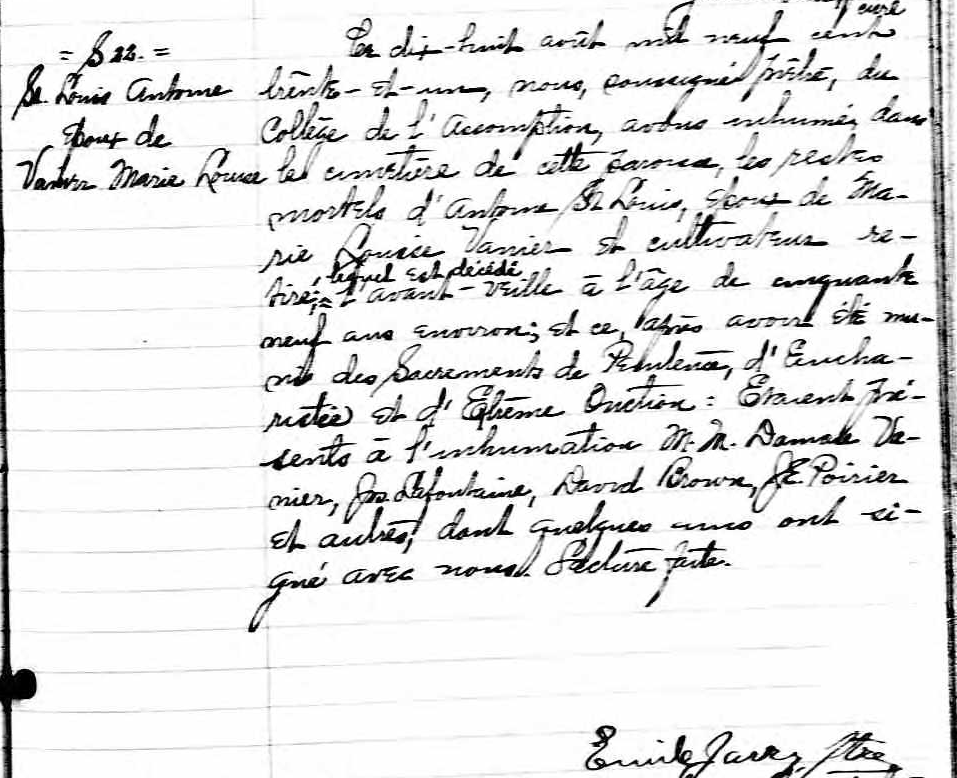 curé
= S 22. =
St. Louis Antoine
époux de
Vanier Marie Louise
Le dix-huit août mil neuf cent
trente-et-un, nous, soussigné prêtre, du
Collège de l'Assomption, avons inhumé, dans
le cimetière de cette paroisse, les restes
mortels d'Antoine St Louis, époux de Ma-
rie Louise Vanier et cultivateur re-
lequel est décédé
tiré; l'avant-veille à l'âge de cinquante
neuf ans environ; et ce, après avoir été mu-
ni des Sacrements de Pénitence, d'Eucha-
ristie et d'Extrême Onction: Etaient pré-
sents à l'inhumation M.M. Damase Va-
nier, Jos. Lafontaine, David Brown, J.E. Poirier
et autres, dont quelques uns ont si-
gné avec nous. Lecture faite.
Emile Jarry, Ptre